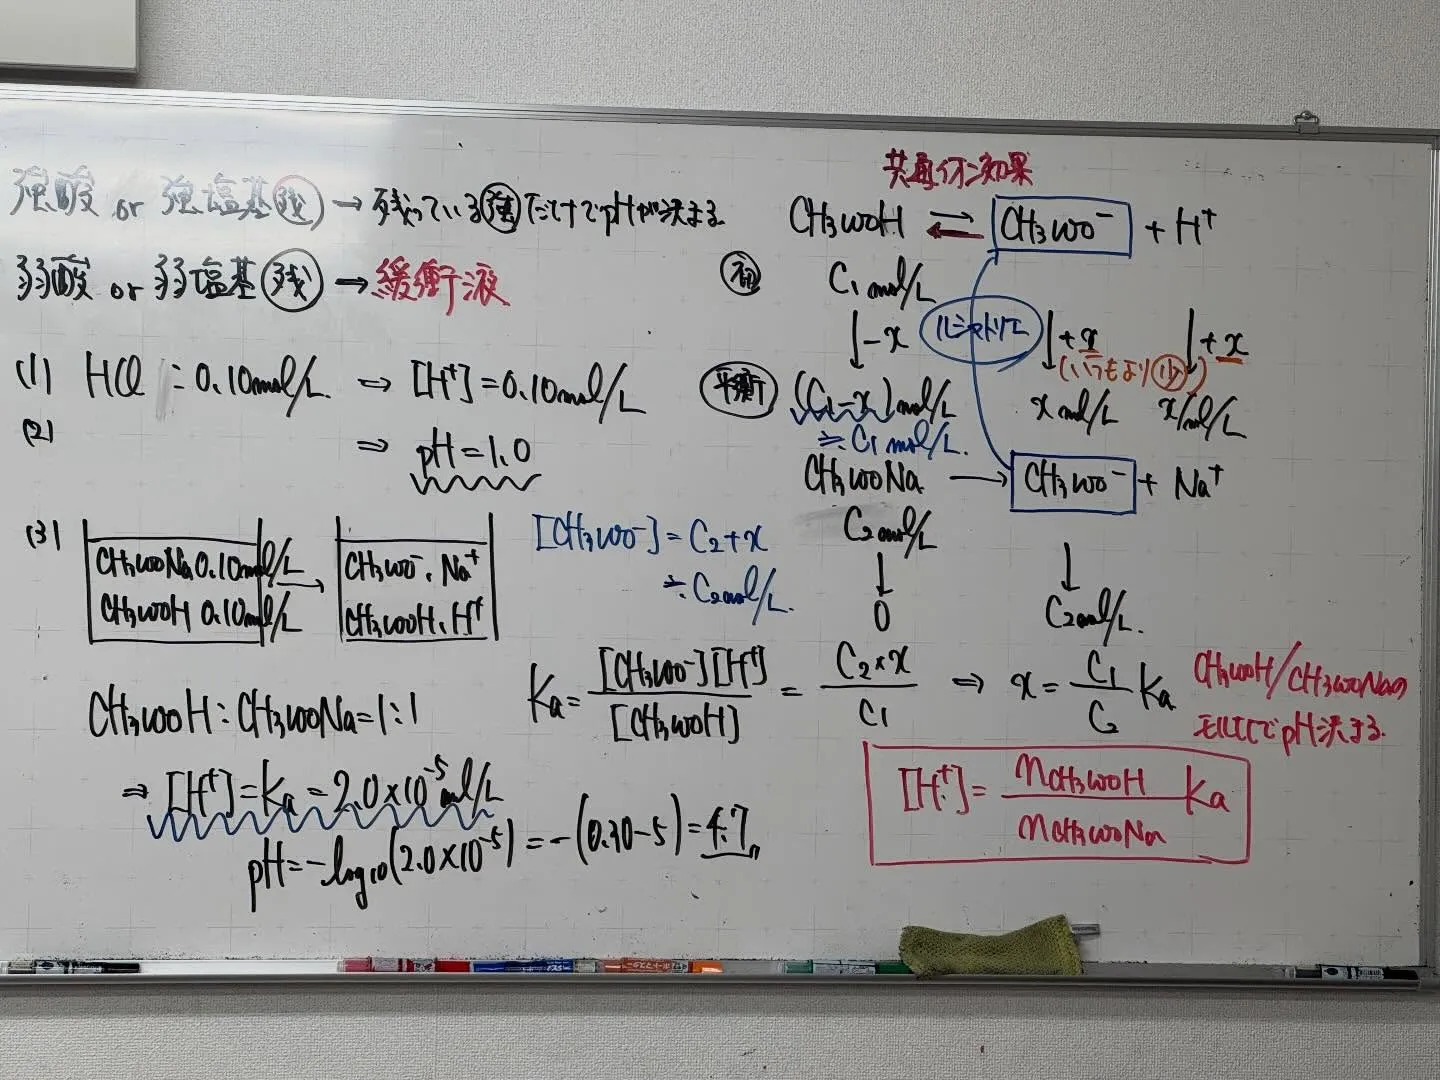 強酸 or 強塩基 残 → 残っている強だけでpHが決まる
弱酸 or 弱塩基 残 → 緩衝液
(1) HCl : 0.10mol/L ⇒ [H⁺]=0.10mol/L
(2)
⇒ pH=1.0
(3)
CH₃COONa 0.10mol/L
CH₃COOH 0.10mol/L
→
CH₃COO⁻, Na⁺
CH₃COOH, H⁺
CH₃COOH : CH₃COONa=1:1
⇒ [H⁺]=Ka=2.0×10⁻⁵mol/L
pH=-log₁₀(2.0×10⁻⁵)=-(0.30-5)=4.7
共通イオン効果
CH₃COOH ⇄ CH₃COO⁻ + H⁺
C₁mol/L
↓-x ↓+x ↓+x
(いつもより少)
平衡 (C₁-x)mol/L xmol/L xmol/L
≒C₁mol/L.
CH₃COONa → CH₃COO⁻ + Na⁺
C₂mol/L
↓ ↓
0 C₂mol/L.
[CH₃COO⁻]=C₂+x
≒C₂mol/L.
Ka=[CH₃COO⁻][H⁺]/[CH₃COOH]=C₂×x/C₁ ⇒ x=C₁/C₂ Ka
CH₃COOH/CH₃COONaの
モル比でpH決まる.
[H⁺]=nCH₃COOH/nCH₃COONa Ka